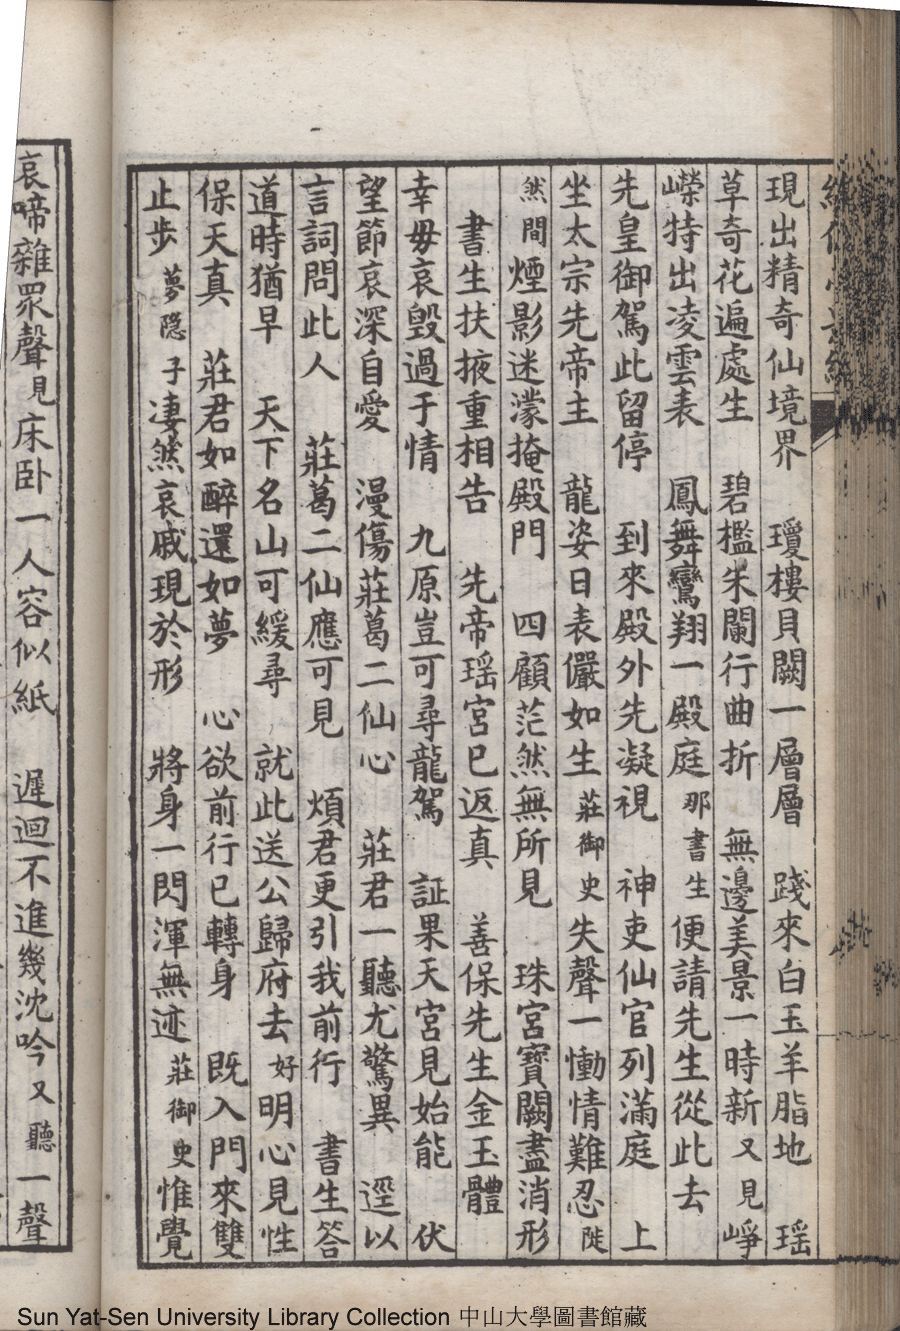 現出精奇仙境界　瓊樓貝闕一層層　踐來白玉羊脂地　瑶
草奇花遍處生　碧檻朱闌行曲折　無邊美景一時新又見崢
嶸特出凌雲表　鳳舞鸞翔一殿庭那書生便請先生從此去
先皇御駕此留停　到來殿外先凝視　神吏仙官列滿庭　上
坐太宗先帝主　龍姿日表儼如生莊御史失聲一慟情難忍陡
然間煙影迷濛掩殿門　四顧茫然無所見　珠宮寶闕盡消形
書生扶掖重相告　先帝瑶宮已返真　善保先生金玉體
幸毋哀毀過于情　九原豈可尋龍駕　証果天宮見始能　伏
望節哀深自愛　漫傷莊葛二仙心　莊君一聽尤驚異　逕以
言詞問此人　莊葛二仙應可見　煩君更引我前行　書生答
道時猶早　天下名山可緩尋　就此送公歸府去好明心見性
保天真　莊君如醉還如夢　心欲前行已轉身　既入門來雙
止步夢隱子淒然哀戚現於形　將身一閃渾無迹莊御史惟覺
哀啼雜眾聲見床卧一人容似紙　遲迴不進幾沈吟又聽一聲
Sun Yat-Sen University Library Collection 中山大學圖書館藏